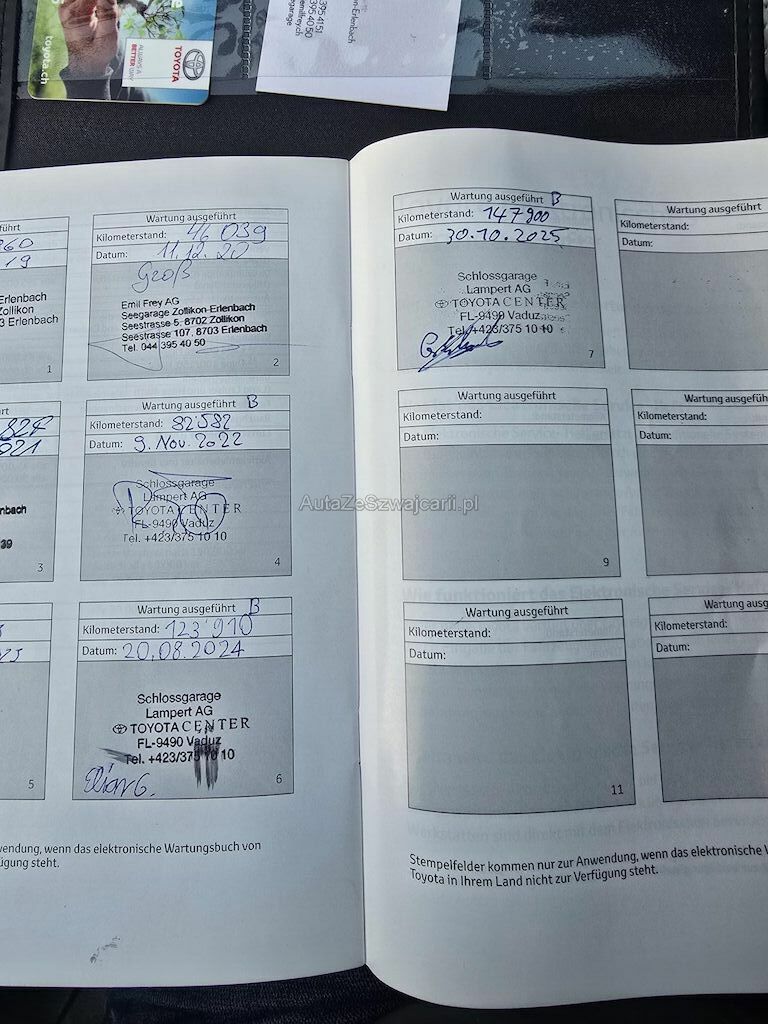 toyota.ch
ALWAYS A
BETTER WAY
TOYOTA
395 4151
395 40 50
emilfrey.ch
egarage
on-Erlenbach
führt
260
19
Erlenbach
Zollikon
3 Erlenbach
1
Wartung ausgeführt
Kilometerstand: 44 039
Datum: 11.12.20
Groß
Emil Frey AG
Seegarage Zollikon-Erlenbach
Seestrasse 5, 8702 Zollikon
Seestrasse 107, 8703 Erlenbach
Tel. 044 395 40 50
2
rt
827
021
nbach
39
3
Wartung ausgeführt B
Kilometerstand: 82582
Datum: 9. Nov. 2022
Schlossgarage
Lampert AG
TOYOTA CENTER
FL-9490 Vaduz
Tel. +423/375 10 10
4
5
Wartung ausgeführt B
Kilometerstand: 123'910
Datum: 20.08.2024
Schlossgarage
Lampert AG
TOYOTA CENTER
FL-9490 Vaduz
Tel. +423/375 10 10
6
wendung, wenn das elektronische Wartungsbuch von
fügung steht.
Wartung ausgeführt B
Kilometerstand: 147'900
Datum: 30.10.2025
Schlossgarage
Lampert AG
TOYOTA CENTER
FL-9490 Vaduz
Tel. +423/375 10 10
7
Wartung ausgeführt
Kilometerstand:
Datum:
Wartung ausgeführt
Kilometerstand:
Datum:
9
Wartung ausgefüh
Kilometerstand:
Datum:
Wartung ausgeführt
Kilometerstand:
Datum:
11
Wartung ausg
Kilometerstand:
Datum:
Stempelfelder kommen nur zur Anwendung, wenn das elektronische W
Toyota in Ihrem Land nicht zur Verfügung steht.
AutaZeSzwajcarii.pl